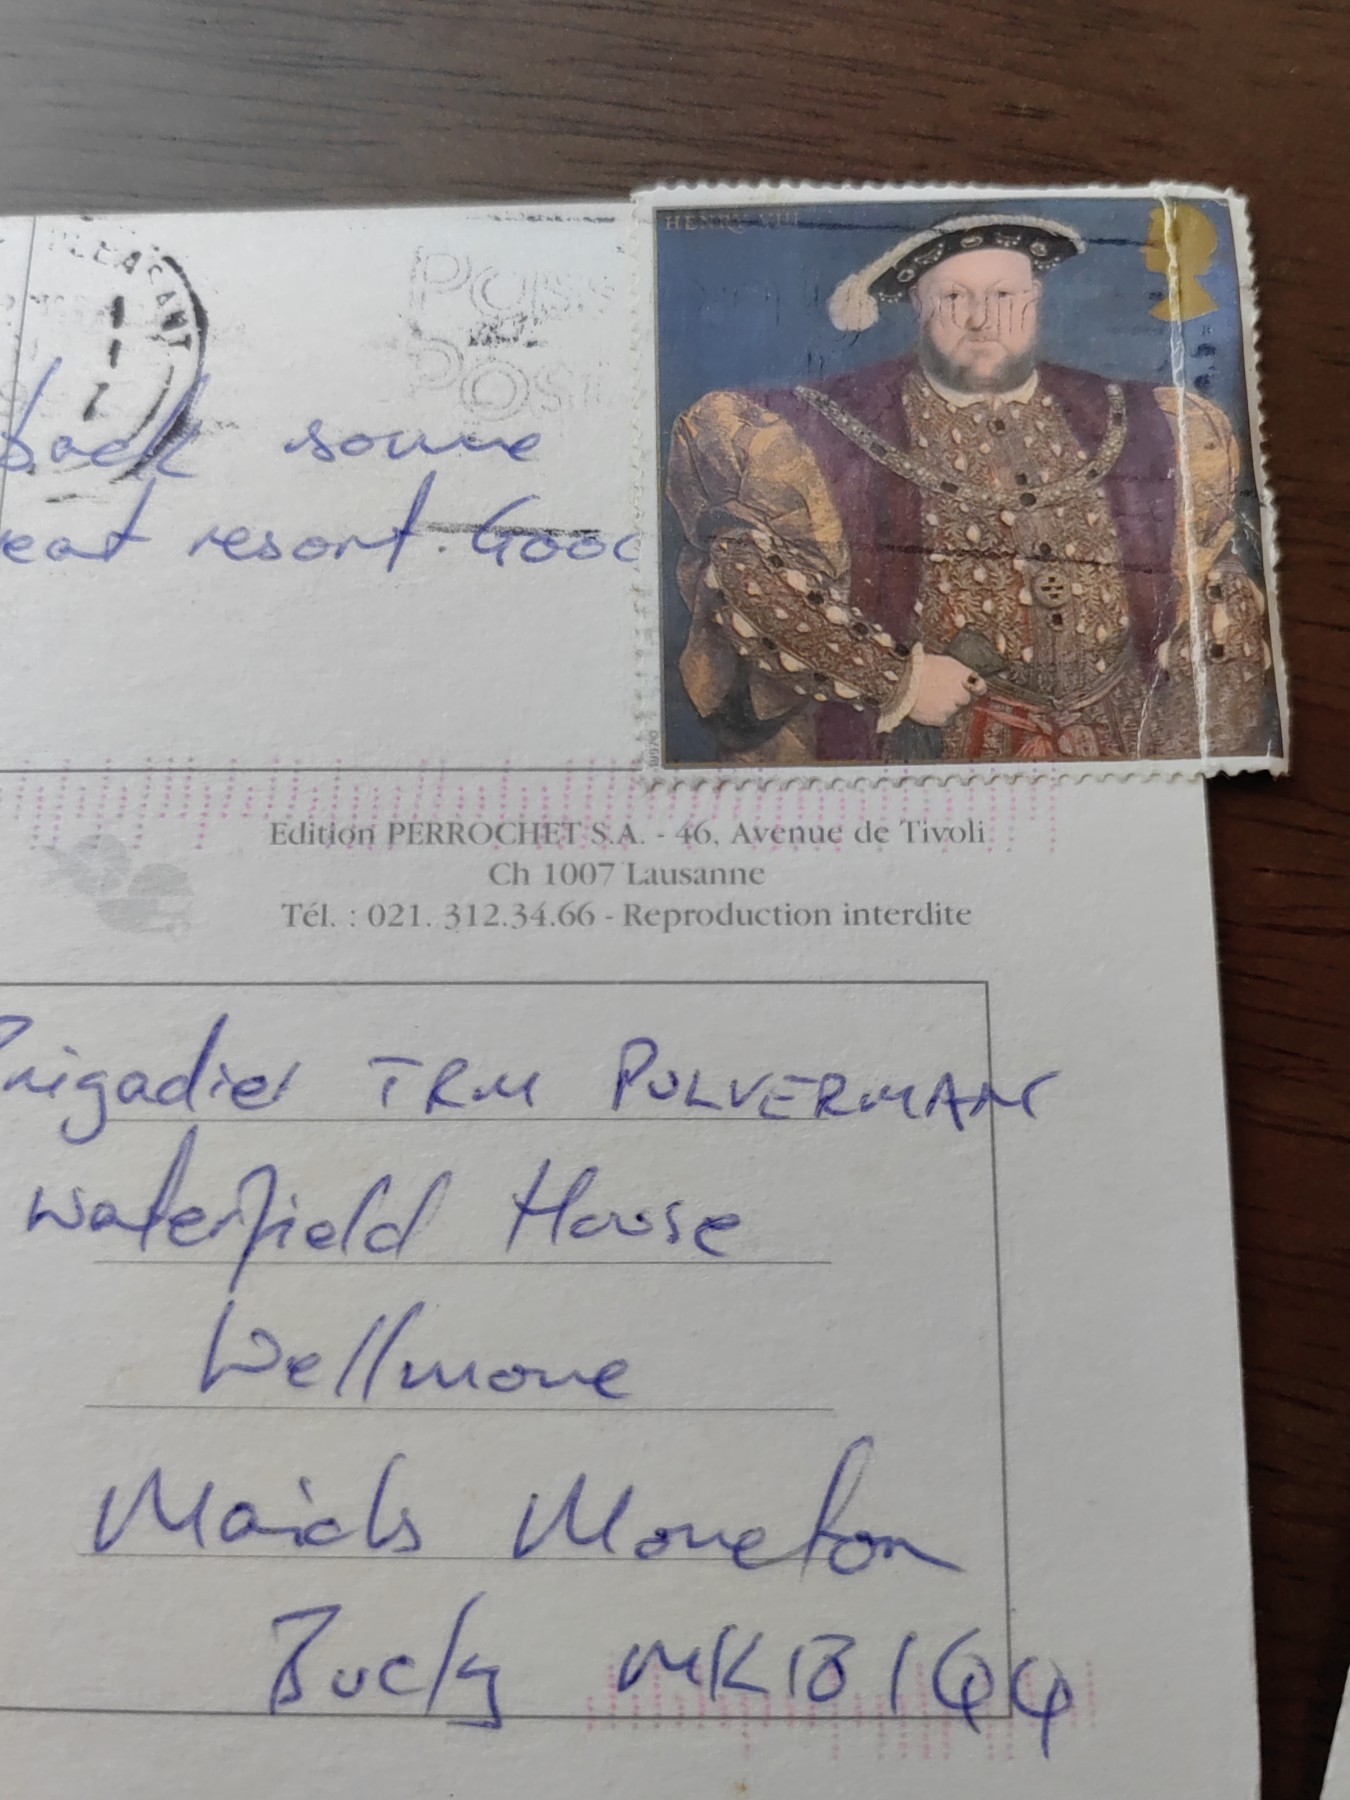 HENRY VIII
PLEASANT
POST
back some
eat resort. Good
Edition PERROCHET S.A. - 46, Avenue de Tivoli
Ch 1007 Lausanne
Tél. : 021. 312.34.66 - Reproduction interdite
Brigadier TRM PULVERMAN
Waterfield House
Wellmore
Maids Moreton
Bucks MK18 1QQ